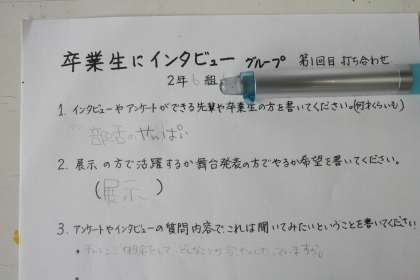 卒業生にインタビュー グループ 第1回目 打ち合わせ
2年6組
1. インタビューやアンケートができる先輩や卒業生の方を書いてください。(何才くらいも)
部活のせんぱい
2. 展示の方で活躍するか舞台発表の方でやるか希望を書いてください。
(展示、)
3. アンケートやインタビューの質問内容でこれは聞いてみたいということを書いてください